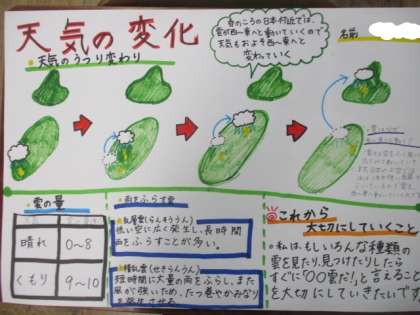 天気の変化
・天気のうつり変わり
春のころの日本付近では、
雲が西→東へと動いていくので
天気もおよそ西→東へと
変わっていく
名前
・雲の量
晴れ 0~8
くもり 9~10
・雨をふらす雲
乱層雲(らんそううん)
低い空に広く発生し、長時間
雨をふらすことが多い。
積乱雲(せきらんうん)
短時間に大量の雨をふらし、また
風が強いため、たつ巻やかみなり
を発生させる
これから
大切にしていくこと
・私は、もしいろんな種類の
雲を見たり、見つけたりしたら
すぐに「〇〇雲だ!」と言えること
を大切にしていきたいです